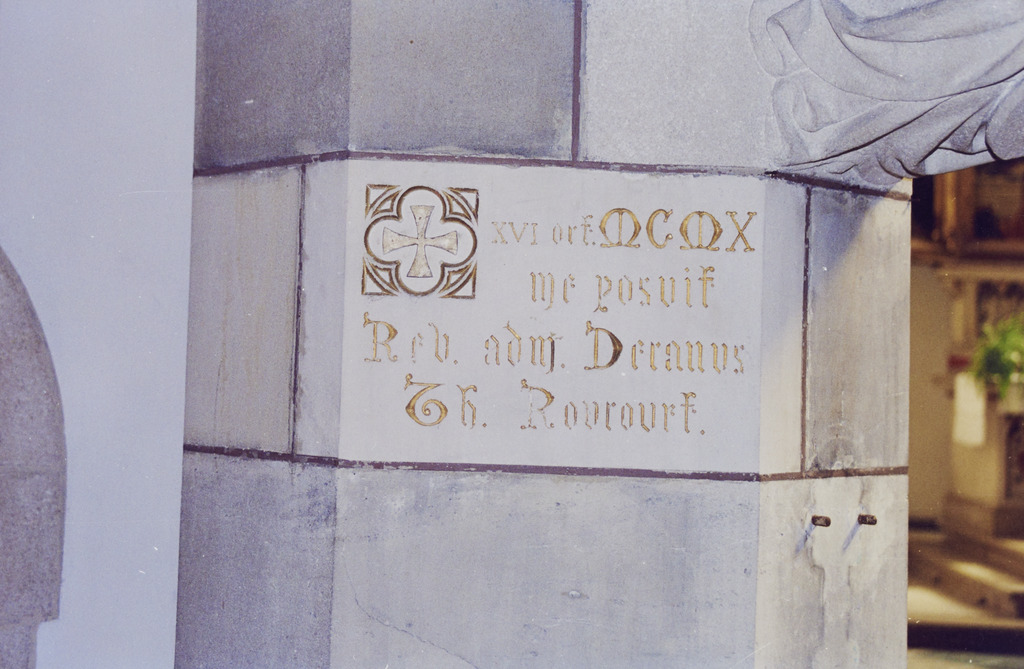 XVI oct. MCMX
me posuit
Rev. adm. Decanus
Th. Roucourt.